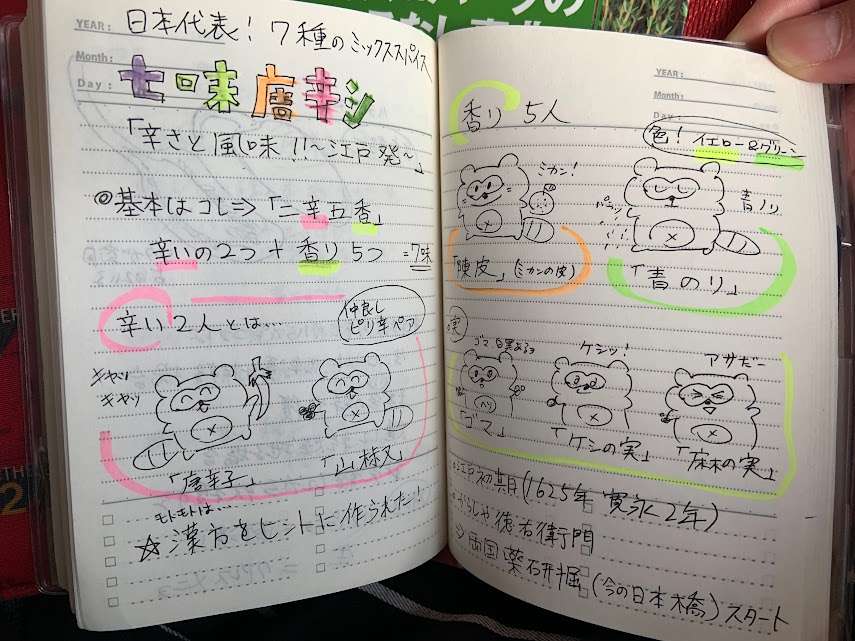 YEAR:
Month:
Day:
日本代表! 7種のミックススパイス
七味唐辛シ
「辛さと風味!!~江戸発~」
◎基本はコレ⇒「二辛五香」
辛いの2つ + 香り5つ =7味
辛い2人とは…
仲良し
ピリ辛ペア
キャッ
キャッ
「唐辛子」
「山椒」
モトモトは…
☆漢方をヒントに作られた!
YEAR:
Month:
Day:
香り 5人
色! イエロー&グリーン
ミカン!
パラッ
青ノリ
「陳皮」(ミカンの皮)
「青のり」
実
ゴマ
ケシッ!
アサだー
「ゴマ」
「ケシの実」
「麻の実」
江戸初期(1625年 寛永2年)
からしや徳右衛門
両国薬研掘(今の日本橋)スタート